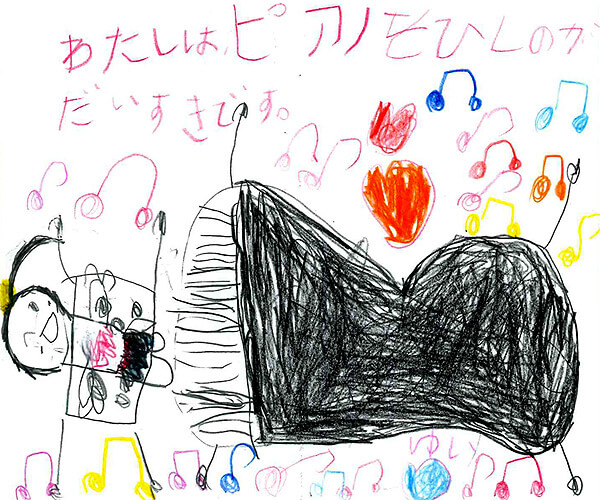 わたしは ピアノをひくのが
だいすきです。